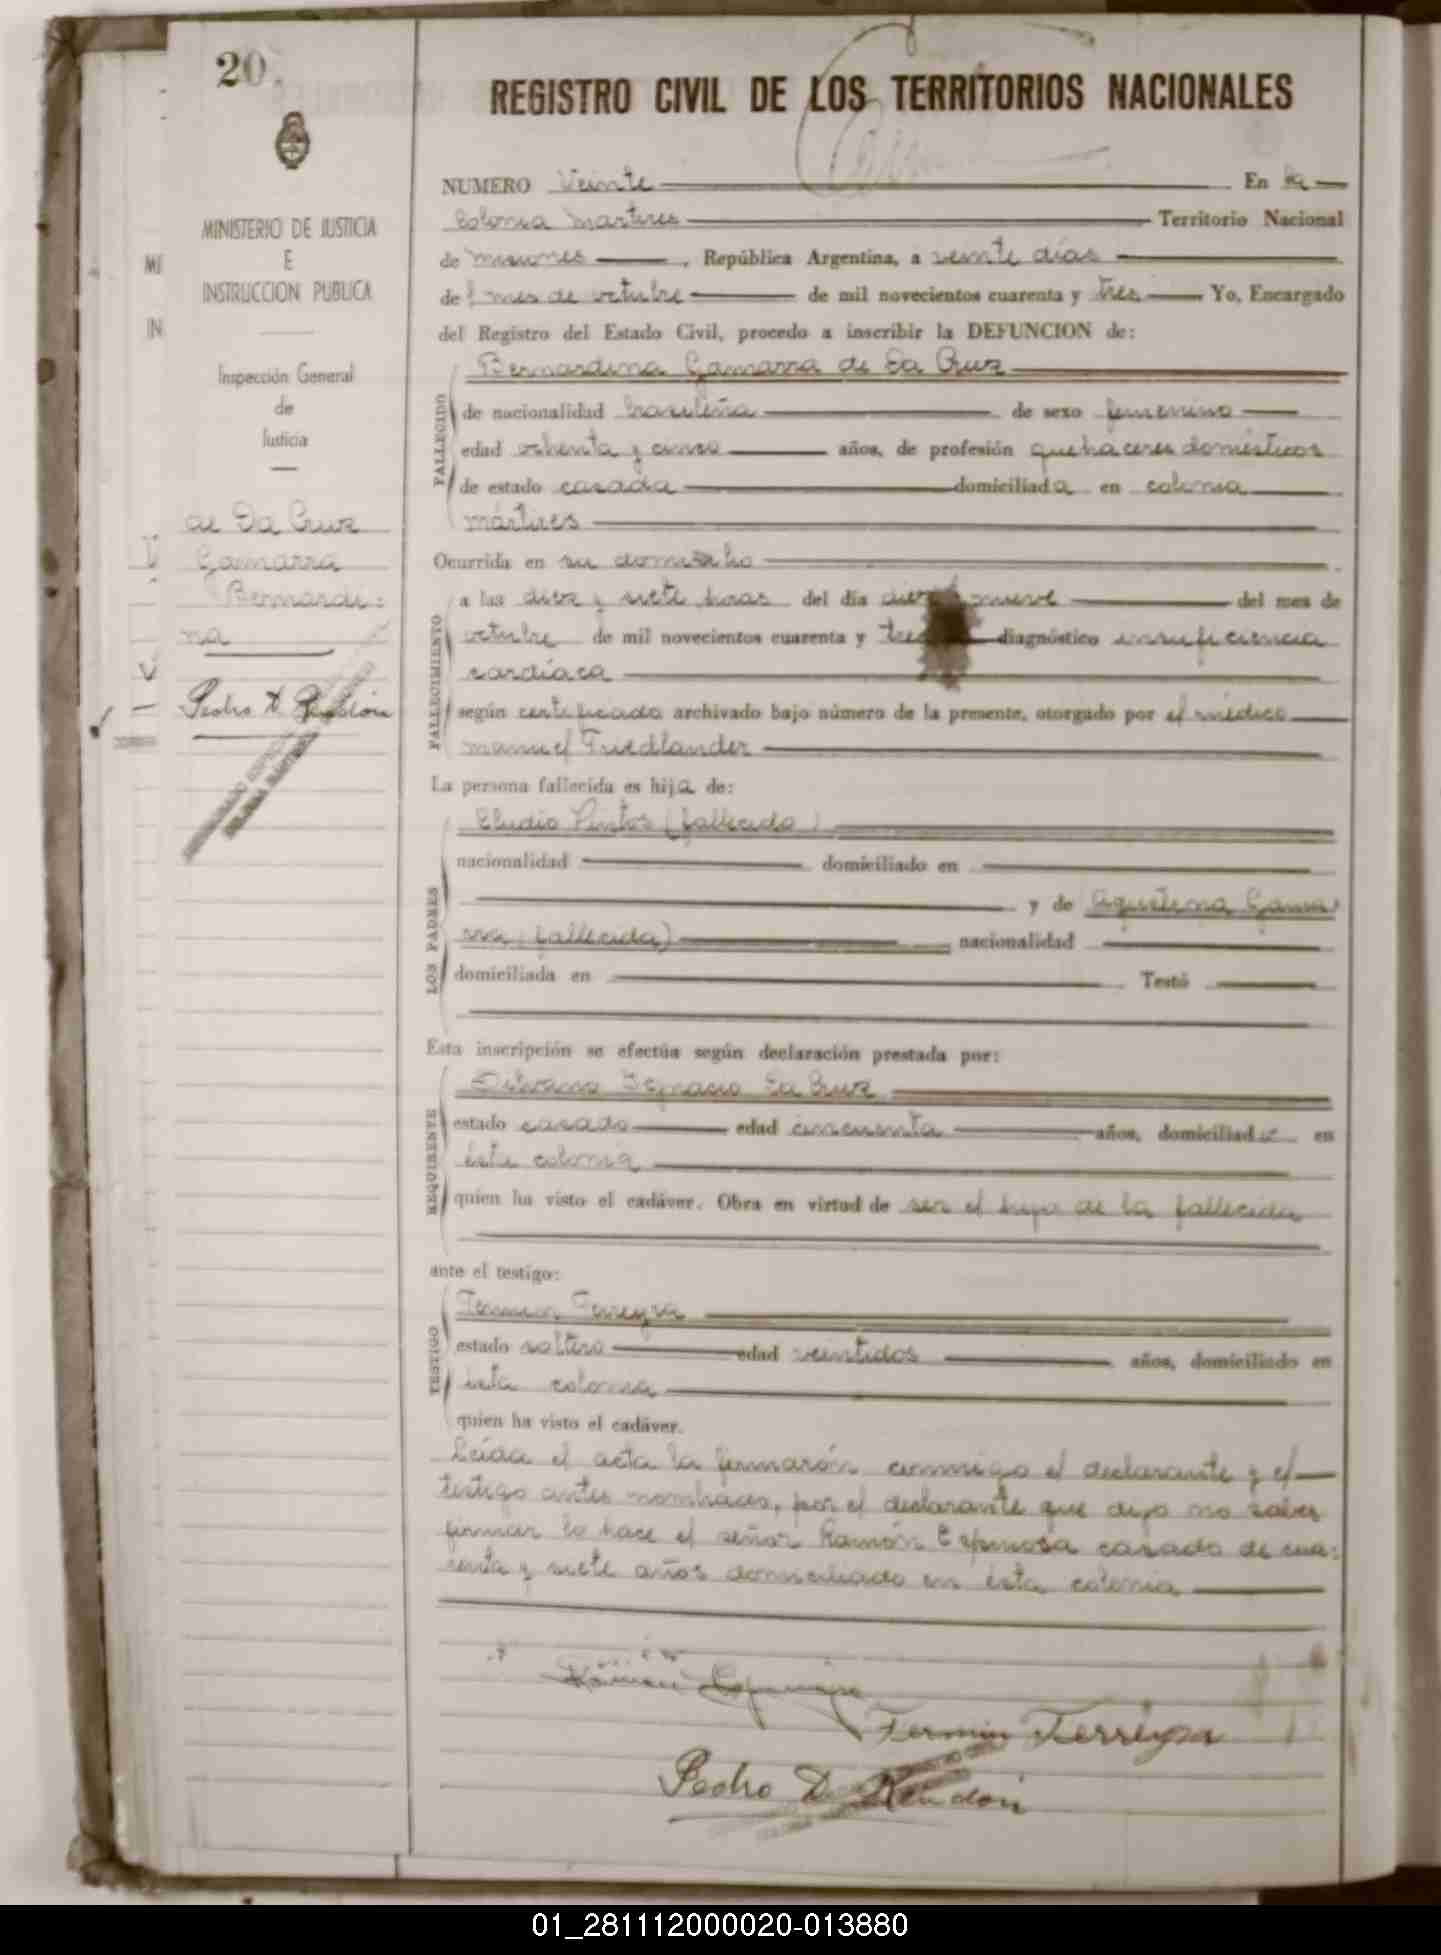 20.
REGISTRO CIVIL DE LOS TERRITORIOS NACIONALES
MINISTERIO DE JUSTICIA
E
INSTRUCCION PUBLICA
Inspección General
de
Justicia
de Da Cruz
Gamarra
Bernardi=
na
Pedro D. Rendón
NUMERO Veinte En la
Colonia Mártires Territorio Nacional
de Misiones, República Argentina, a veinte días
del mes de octubre de mil novecientos cuarenta y tres Yo, Encargado
del Registro del Estado Civil, procedo a inscribir la DEFUNCION de:
FALLECIDO
Bernardina Gamarra de Da Cruz
de nacionalidad brasileña de sexo femenino
edad ochenta y cinco años, de profesión quehaceres domésticos
de estado casada domiciliada en colonia
mártires
Ocurrida en su domicilio
FALLECIMIENTO
a las diez y siete horas del día diez y nueve del mes de
octubre de mil novecientos cuarenta y tres diagnóstico insuficiencia
cardíaca
según certificado archivado bajo número de la presente, otorgado por el médico
manuel Friedlander
La persona fallecida es hija de:
LOS PADRES
Eludio Pintos (fallecido)
nacionalidad domiciliado en
y de Gama
rra (fallecida) nacionalidad
domiciliada en Testó
Esta inscripción se efectúa según declaración prestada por:
REQUIRENTE
Silvano Ignacio Da Cruz
estado casado edad cincuenta años, domiciliado en
ésta colonia
quien ha visto el cadáver. Obra en virtud de ser el hijo de la fallecida
ante el testigo:
TESTIGO
Fermin Ferreyra
estado soltero edad veintidos años, domiciliado en
ésta colonia
quien ha visto el cadáver.
Leída el acta la firmarón conmigo el declarante y el
testigo antes nombrados, por el declarante que dijo no saber
firmar lo hace el señor Ramón Espinosa casado de cua=
renta y siete años domiciliado en ésta colonia
Ramón Espinosa
Fermin Ferreyra
Pedro D. Rendón
01_281112000020-013880